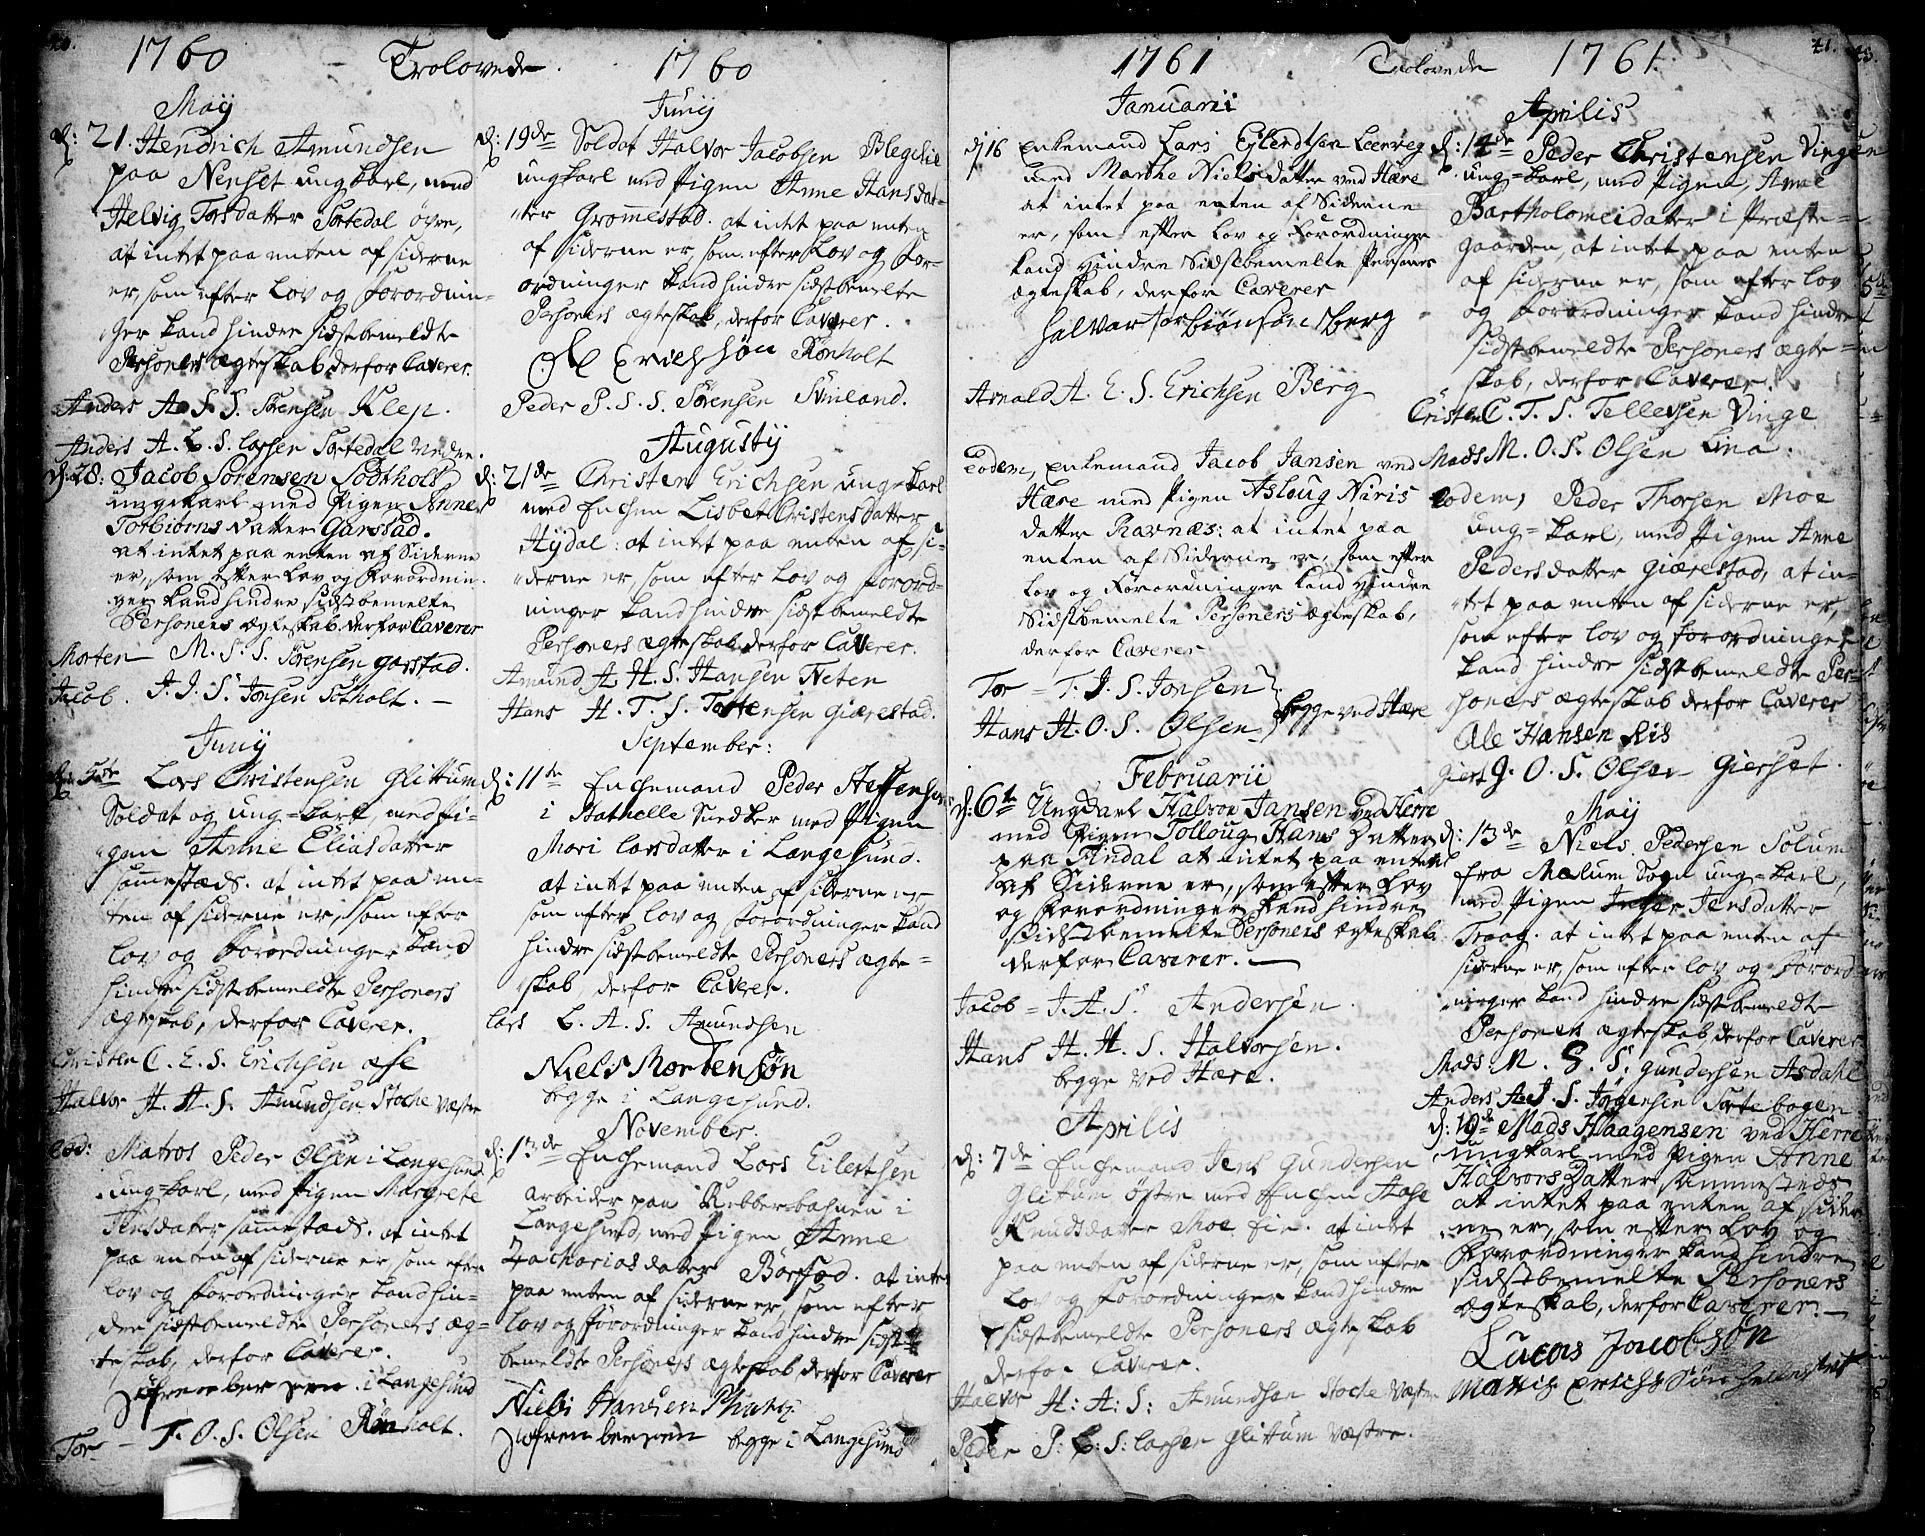 1760 Trolovede. 1760
Maij
d: 21. Hendrich Amundsen
paa Nenset ungkarl, med
Helvig Torsdatter Tortedal øvre,
at intet paa enten af siderne
er, som efter Lov og Forordnin-
ger kand hindre sidstbemeldte
Personers ægteskab derfor Caverer.
Anders A. S. S. Sørensen Klep.
Anders A. L. S. Larsen Tortedal nedre.
d: 28: Jacob Sørensen Sodtholt
ungekarl med Pigen Anne
Torbiøons datter Garstad.
at intet paa enten af Siderne
er, som efter Lov og Forordnin-
ger kand hindre sidstbemelte
Personers ægteskab. derfor Caverer
Morten M. S. S. Sørensen garstad.
Jacob. J. J. S. Jonsen Sotholt. —
Junij
d: 5te Lars Christensen Glittum
Soldat og ung-karl, med Pi-
gen Anne Eliasdatter
sammestæds. at intet paa en-
ten af siderne er, som efter
Lov og Forordninger kand
hindre sidstbemeldte Personers
ægteskab, derfor Caverer.
Christen C. E. S. Erichsen
Halvor H. A. S. Amundsen Stoche væstre
eod: Matros Peder Olsen i Langesund
ung-karl, med Pigen Margrete
Jensdatter sammestæds. at intet
paa enten af siderne er som efter
lov og Forordninger kand hin-
dre sidstbemeldte Personers æg-
teskab, derfor Caverer.
i Langesund
Tor — T. O. S. Olsen Rønholt.
Junij
d: 19de Soldat Halvor Jacobsen
ungkarl med Pigen Anne Hansdat-
ter Grommestad. at intet paa enten
af siderne er, som efter Lov og For-
ordninger kand hindre sidstbemelte
Personers ægteskab, derfor Caverer.
Ole Erichsøn Rønholt
Peder P. S. S. Sørensen Svinland.
Augustij
d: 21de Christen Erichsen ung-karl
med Enchen Lisbet Christensdatter
Hijdal: at intet paa enten af si-
derne er, som efter Lov og Forord-
ninger kand hindre sidstbemeldte
Personers ægteskab derfor Caverer.
Amund A. H. S. Hansen Neten
Hans H. T. S. Giærestad.
September:
d: 11te Enchemand Peder Steffensen
i Snedker med Pigen
Mari Larsdatter i Langesund.
at intet paa enten af siderne er,
som efter lov og Forordninger kand
hindre sidstbemeldte Personers ægte-
skab, derfor Caverer.
Lars L. A. S. Amundsen
Niels Mortensøn
begge i Langesund.
November.
d: 13de Enchemand Lars Eilertsen
arbeider paa Kubberbachen i
Langesund, med Pigen Anne
Zachariasdater Børsod. at intet
paa enten af siderne er, som efter
Lov og Forordninger kand hindre sidst-
bemeldte Personers ægteskab derfor Caverer
Niels Hansen
begge i Langesund
1761 Trolovede 1761. 41.
Januarii
d 16 Enkemand Lars Ejlerdtsen Leerveg
med Marthe Nielsdatter ved Hære
at intet paa enten af Siderne
er, som efter Lov og Forordninger
kand Hindre Sidstbemelte Personers
ægteskab, derfor Caverer
Halvar Torbiønsøns berg
Arnold A. E. S. Erichsen Berg
Eodem, Enkemand Jacob Jansen ved
Hære med Pigen Asloug Naris
datter Ravnæs: at intet paa
enten af Siderne er, som efter
Lov og Forordninger kand Hindre
Sidstbemelte Personers ægteskab,
derfor Caverer
Tor = T. J. S. Jonsen
Hans H. O. S. Olsen } begge ved Hære
Februarii
d: 6te Ungkarl Halvor Jansen ved Herre
med Pigen Tolloug Hans Datter
paa Findal at intet paa enten
af Siderne er, som efter Lov
og Forordninger kand hindre
sidstbemelte Personers ægteskab
derfor Caverer. —
Jacob = J. A. S. Andersen.
Hans H. H. S. Halvorsen.
begge ved Hære.
Aprilis
d: 7de Enchemand Jens Gundersen
Glittum østre med Enchen Aase
Knudsdatter Moe at intet
paa enten af siderne er, som efter
Lov og Forordninger kand hindre
sidstbemeldte Personers ægteskab
derfor Caverer.
Halvor H: A: S: Amundsen Stoche væstre
Peder P: L: S: Larsen glittum væstre.
Aprilis
d: 14de Peder Christensen Vinge
ung-karl, med Pigen, Anne
Bartholomeidater i Præste-
gaarden, at intet paa enten
af siderne er, som efter lov
og Forordninger kand hindre
sidstbemeldte Personers ægte-
skab, derfor Caverer.
Cristen C. T. S. Tellevsen Vinge
Mads M. O. S. Olsen Lina.
eodem, Peder Thorsen Moe
ung-karl, med Pigen Anne
Pedersdatter giærestad, at in-
tet paa enten af siderne er,
som efter lov og forordninger
kand hindre sidstbemeldte Per-
soners ægteskab derfor Caverer
Ole Hansen Riis
Giert J. O. S. Olsen Gierset.
Maij
d: 13de Niels Pedersen Solum
fra Mælum Sogn ung-karl,
med Pigen Inger Jensdatter
Traag. at intet paa enten af
siderne er, som efter lov og Forord-
ninger kand hindre sidstbemeldte
Personers ægteskab, derfor Caverer
Mads M. G. S. gundersen Asdahl
Anders A. J. S. Jørgensen Tortebogen
d: 19de Mads Haagensen ved Herre
ungkarl med Pigen Anne
Halvors Datter sammesteds
at intet paa enten af Sider
ne er, som efter Lov og
Forordninger kand hindre
sidstbemelte Personers
ægteskab, derfor Caverer. —
Lucas Jacobsøn